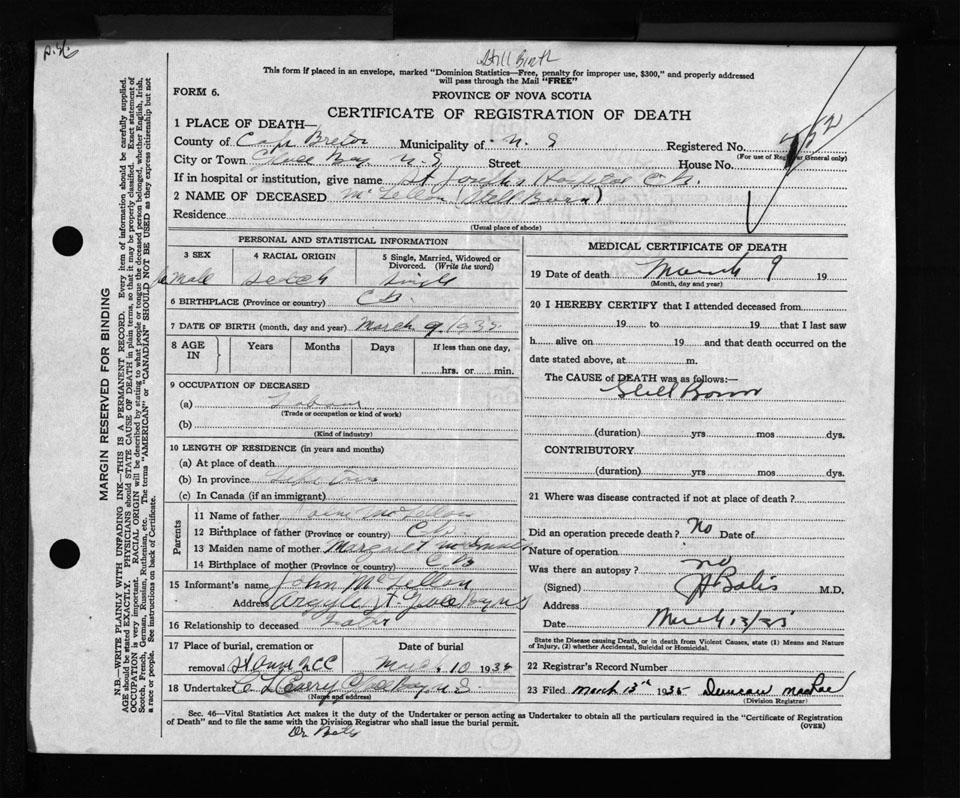 Still Birth
This form if placed in an envelope, marked "Dominion Statistics—Free, penalty for improper use, $300," and properly addressed
will pass through the Mail "FREE"
FORM 6.
PROVINCE OF NOVA SCOTIA
CERTIFICATE OF REGISTRATION OF DEATH
1 PLACE OF DEATH—
County of Cape Breton Municipality of N. S Registered No.
(For use of Registrar General only)
City or Town Glace Bay N. S Street House No.
If in hospital or institution, give name St Joseph's Hospital C. B.
2 NAME OF DECEASED McLellan (Still Born)
Residence
(Usual place of abode)
PERSONAL AND STATISTICAL INFORMATION
3 SEX
4 RACIAL ORIGIN
5 Single, Married, Widowed or Divorced. (Write the word)
Scotch Single
6 BIRTHPLACE (Province or country) C B
7 DATE OF BIRTH (month, day and year) March 9. 1935
8 AGE IN
Years Months Days If less than one day,
hrs. or min.
9 OCCUPATION OF DECEASED
(a)
(Trade or occupation or kind of work)
(b)
(Kind of industry)
10 LENGTH OF RESIDENCE (in years and months)
(a) At place of death
(b) In province
(c) In Canada (if an immigrant)
Parents
11 Name of father McLellan
12 Birthplace of father (Province or country) C B
13 Maiden name of mother Margaret
14 Birthplace of mother (Province or country) C B
15 Informant's name John McLellan
Address Argyle St. Glace Bay N S
16 Relationship to deceased Father
17 Place of burial, cremation or removal
Date of burial
March 10 1935
18 Undertaker Curry Glace Bay N. S.
(Name and address)
MEDICAL CERTIFICATE OF DEATH
19 Date of death March 9 19
(Month, day and year)
20 I HEREBY CERTIFY that I attended deceased from
19 to 19 that I last saw
h alive on 19 and that death occurred on the
date stated above, at m.
The CAUSE of DEATH was as follows:—
Still Born
(duration) yrs mos dys.
CONTRIBUTORY
(duration) yrs. mos. dys.
21 Where was disease contracted if not at place of death?
Did an operation precede death? No Date of
Nature of operation
Was there an autopsy? no
(Signed) M.D.
Address
Date March 13/35
State the Disease causing Death, or in death from Violent Causes, state (1) Means and Nature
of Injury, (2) whether Accidental, Suicidal or Homicidal.
22 Registrar's Record Number
23 Filed March 13th 1935 Duncan MacRae
(Division Registrar)
Sec. 46—Vital Statistics Act makes it the duty of the Undertaker or person acting as Undertaker to obtain all the particulars required in the "Certificate of Registration
of Death" and to file the same with the Division Registrar who shall issue the burial permit.
(OVER)
MARGIN RESERVED FOR BINDING
N.B.—WRITE PLAINLY WITH UNFADING INK—THIS IS A PERMANENT RECORD. Every item of information should be carefully supplied.
AGE should be stated EXACTLY. PHYSICIANS should STATE CAUSE OF DEATH in plain terms, so that it may be properly classified. Exact statement of
OCCUPATION is very important. RACIAL ORIGIN will be described by stating to what people or tongue the deceased person belonged, whether English, Irish,
Scotch, French, German, Russian, Ruthenian, etc. The terms "AMERICAN" or "CANADIAN" SHOULD NOT BE USED as they express citizenship but not
a race or people. See instructions on back of Certificate.